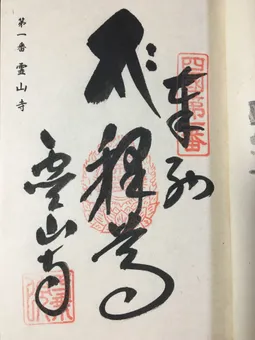 四國第一番
奉納
釋尊
霊山寺
第一番 霊山寺